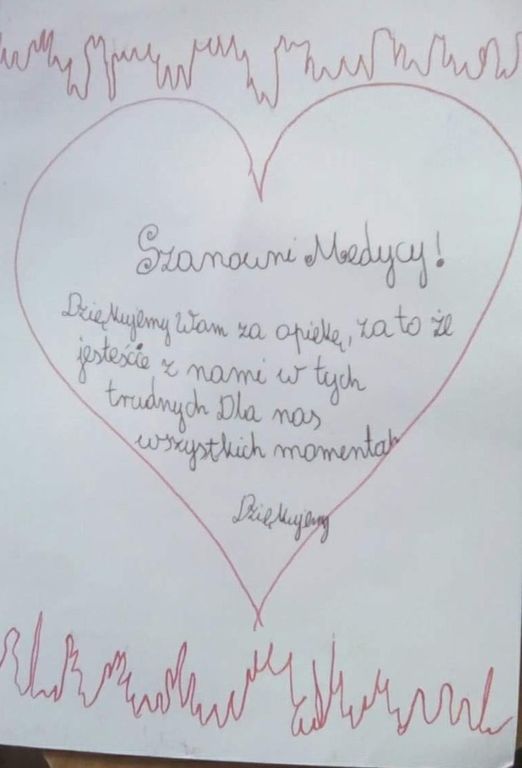 Szanowni Medycy!
Dziękujemy Wam za opiekę, za to że
jesteście z nami w tych
trudnych Dla nas
wszystkich momentah
Dziękujemy